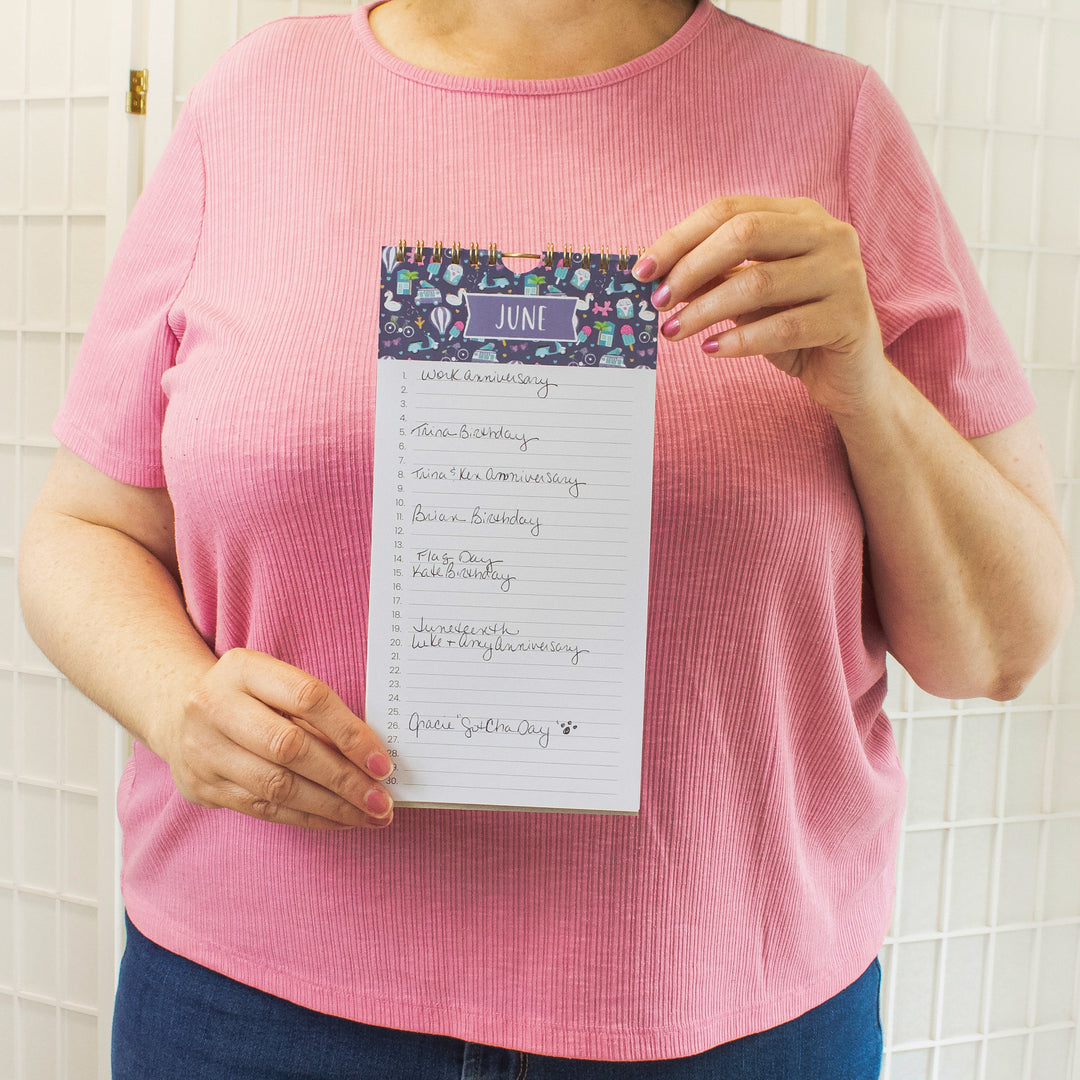 JUNE
1. Work anniversary
2.
3.
4.
5. Trina Birthday
6.
7.
8. Trina & Ken anniversary
9.
10.
11. Brian Birthday
12.
13.
14. Flag Day
15. Kate Birthday
16.
17.
18.
19. Juneteenth
20. Luke + Amy anniversary
21.
22.
23.
24.
25.
26. Gracie "GotCha Day"
27.
28.
9.
30.